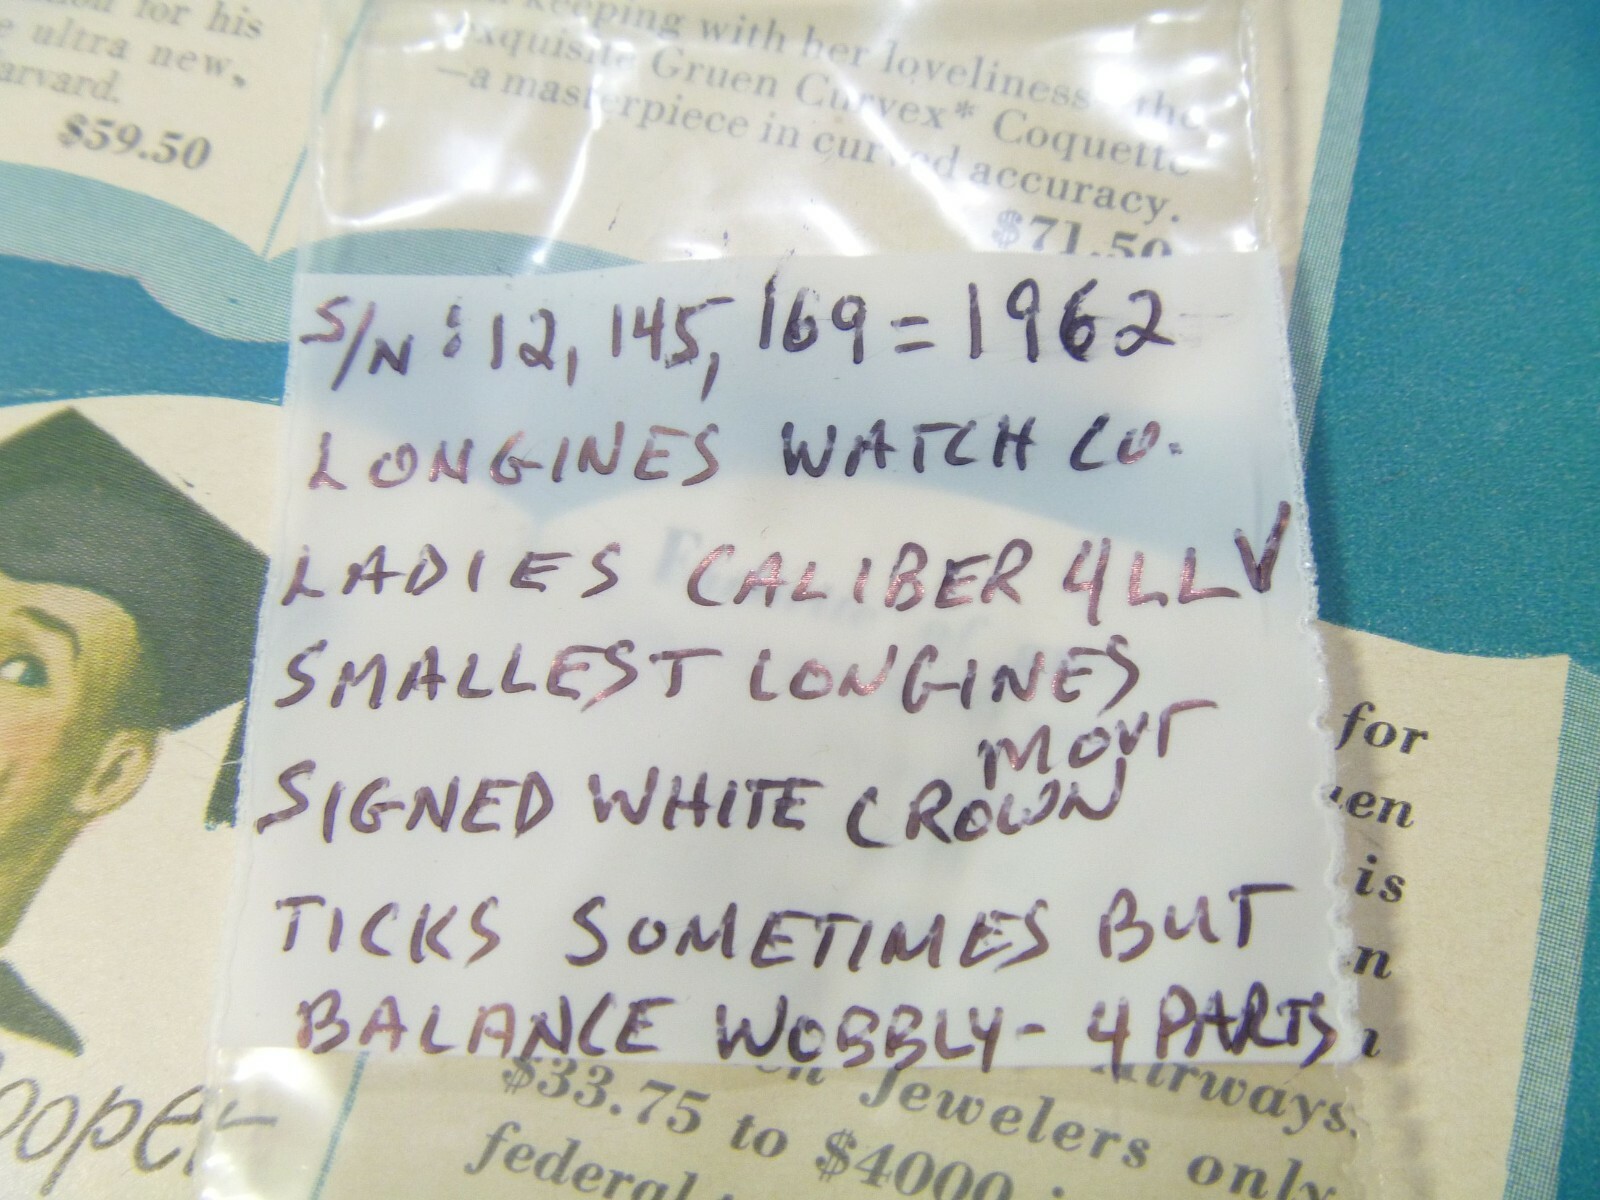 for his
ultra new,
arvard.
$59.50
keeping with her loveliness the
exquisite Gruen Curvex* Coquette
—a masterpiece in curved accuracy.
$71.50
S/N: 12,145,169 = 1962
LONGINES WATCH CO.
LADIES CALIBER 4LLV
SMALLEST LONGINES
MOVT
SIGNED WHITE CROWN
TICKS SOMETIMES BUT
BALANCE WOBBLY - 4 PARTS
for
en
is
n
Jewelers
Airways.
$33.75 to $4000
only
federal
ooper